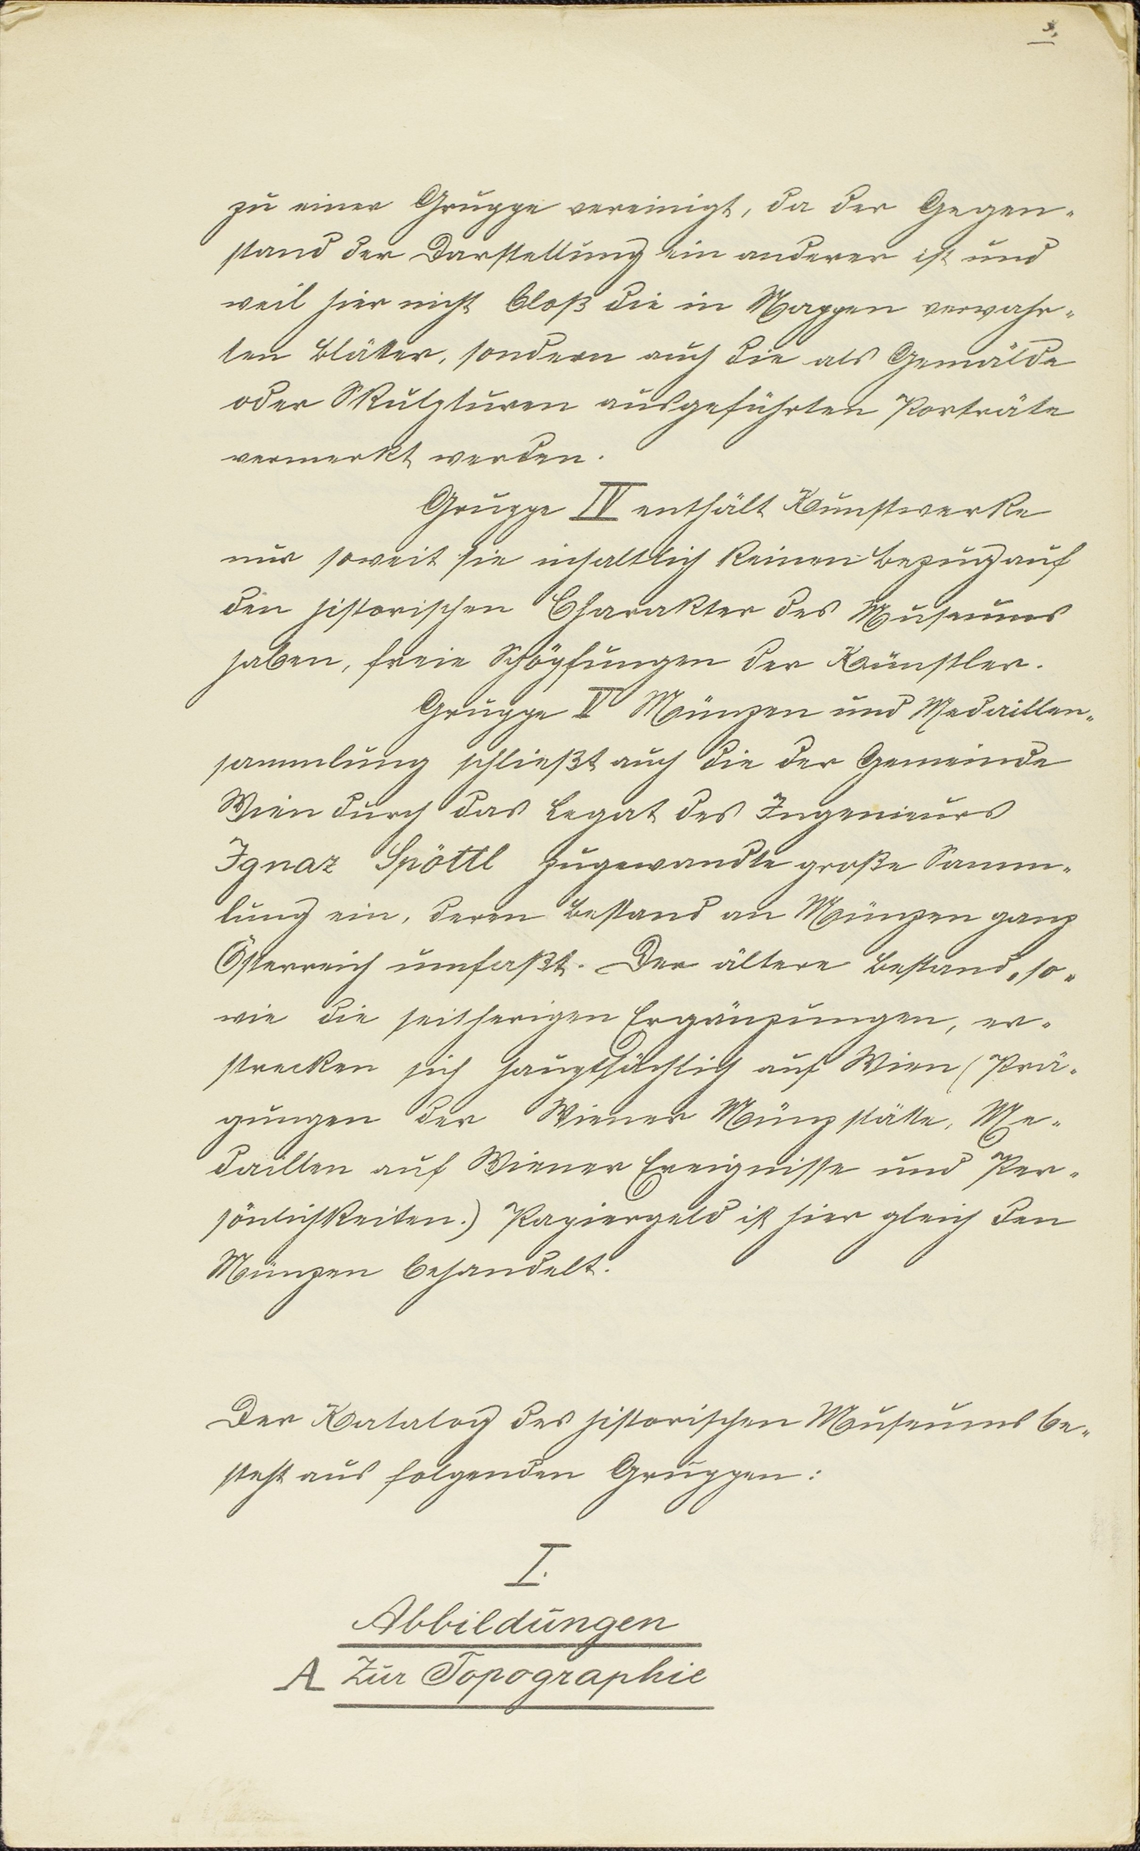 3,
zu einer Gruppe vereinigt, da der Gegen-
stand der Darstellung ein anderer ist und
weil hier nicht bloß die in Mappen verwahr-
ten Blätter, sondern auch die als Gemälde
oder Skulpturen ausgeführten Porträte
vermerkt werden.
Gruppe IV enthält Kunstwerke
nur soweit sie inhaltlich keinen Bezug auf
den historischen Charakter des Museums
haben, freie Schöpfungen der Künstler.
Gruppe V Münzen und Medaillen-
sammlung schließt auch die der Gemeinde
Wien durch das Legat des Ingenieurs
Ignaz Spöttl zugewandte große Samm-
lung ein, deren Bestand an Münzen ganz
Österreich umfaßt. Der ältere Bestand, so-
wie die seitherigen Ergänzungen, er-
strecken sich hauptsächlich auf Wien (Prä-
gungen der Wiener Münzstätte, Me-
daillen auf Wiener Ereignisse und Per-
sönlichkeiten.) Papiergeld ist hier gleich den
Münzen behandelt.
Der Katalog des historischen Museums be-
steht aus folgenden Gruppen:
I.
Abbildungen
A Zur Topographie